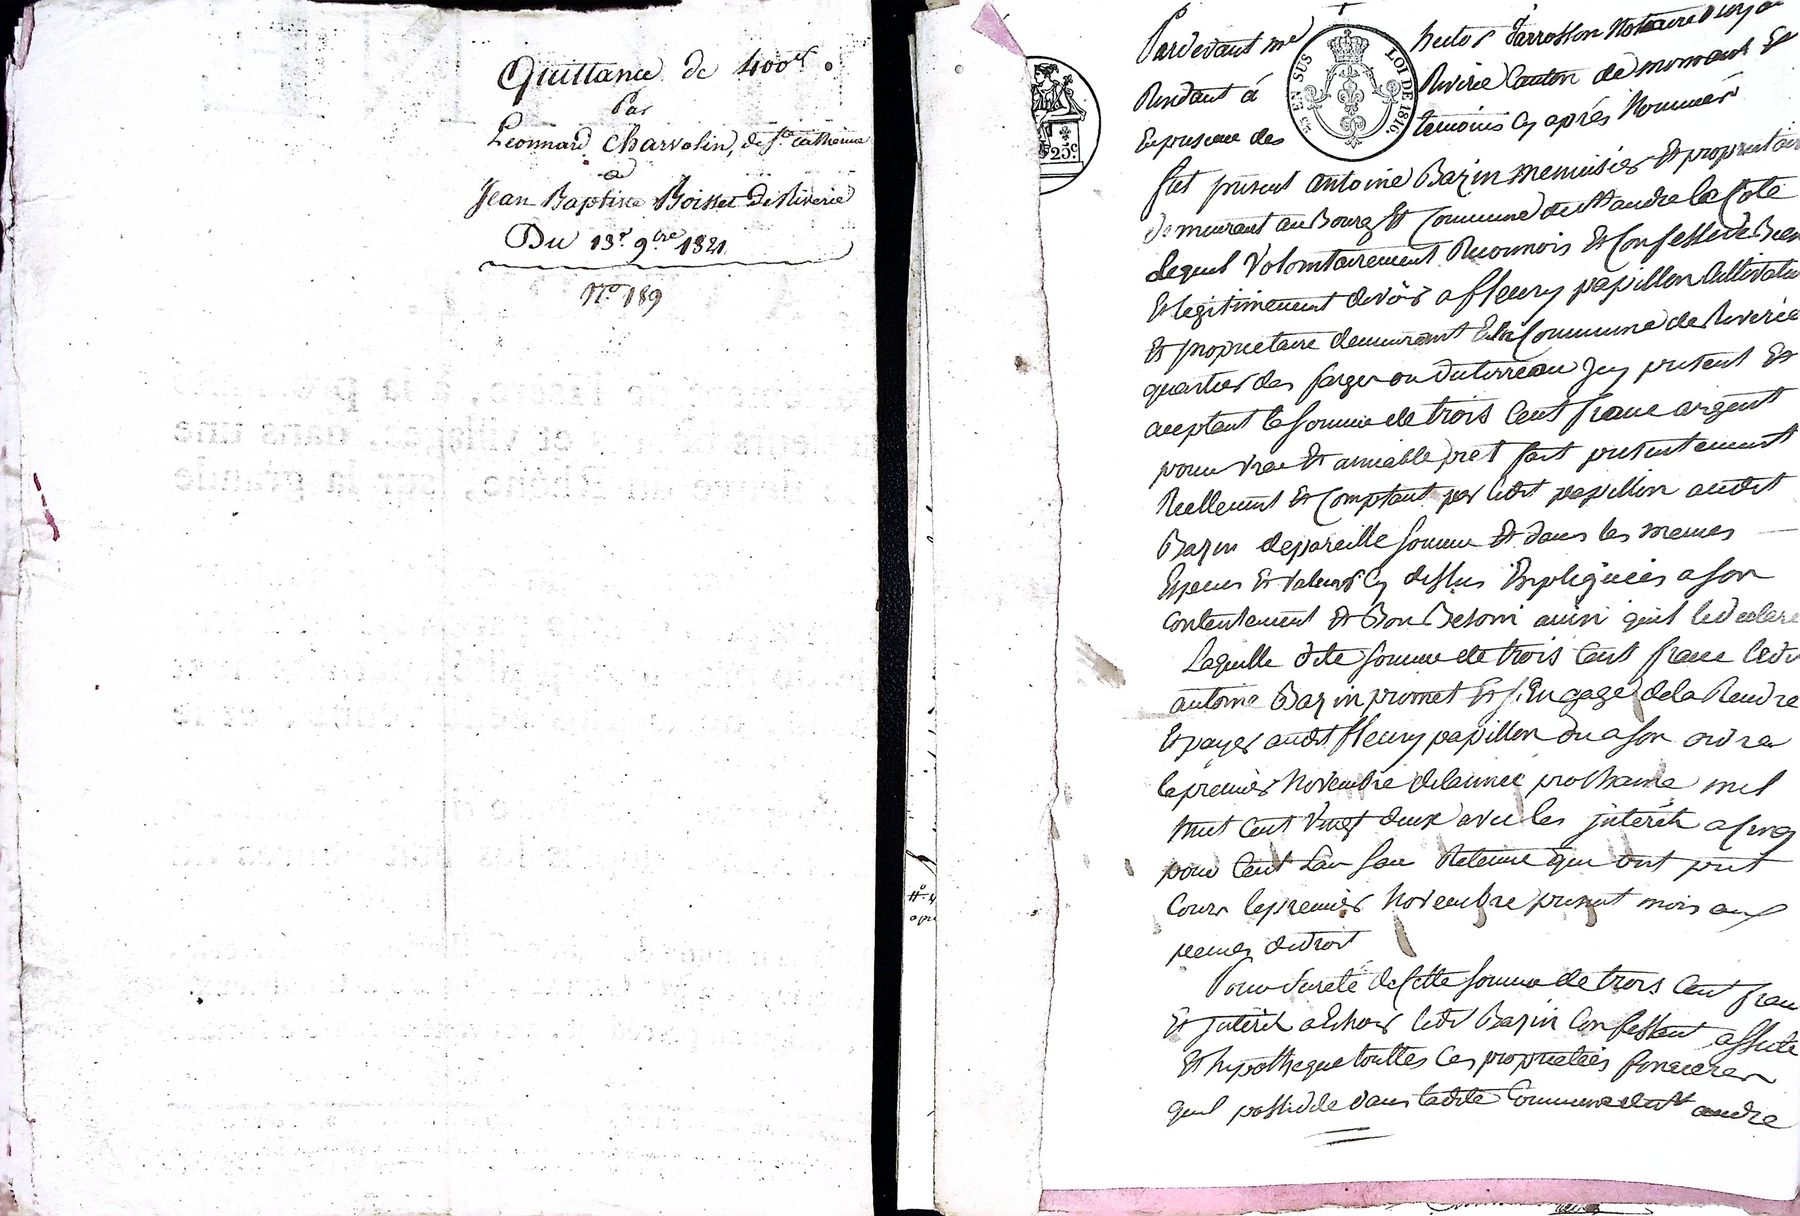 Quittance de 400f.
Par
Leonnard Charvolin, de Ste. Catherine
a
Jean Baptiste Boisset De Riverie
Du 13r. 9bre 1821
N.o 189
25c
EN SUS
LOI DE 1816.
Pardevant me hector Darrosson Notaire Royal
Residant á Riverie Canton de mornant Et
En presence des temoins Cy aprés Nommés
fut present antoine Bazin menuisier Et proprietaire
demeurant au Bourg Et Commune de st andre la Cote
Lequel Volomtairement Reconnois Et Confesse de Bien
Et legitimement devoir a fleury papillon Cultivateur
Et proprietaire demeurant En la Commune de Riverie
quartier des farges ou du terreau Jcy present Et
aceptant la Somme de trois Cent franc argent
pour vrai Et amiable pret fait presentement
Reellement Et Comptant par ledit papillon audit
Bazin de pareille Somme Et dans les memes
Especes Et valeurs Cy dessus Expliquées a son
Contentement Et Bon Besoin ainsi quil le declare
Laquelle dite Somme de trois Cent franc ledit
antoine Bazin promet Et s'Engage de la Rendre
Et payer audit fleury papillon ou a son ordre
le premier Novembre de lannee prochaine mil
huit Cent Vingt deux avec les jnterêt a Cinq
pour Cent Lan San Retenue qui ont prit
Cours le premier Novembre present mois aux
peines de droit
Pour Sureté de Cette Somme de trois Cent franc
Et jnterêt a Echoir ledit Bazin Confessant affecte
Et hypotheque touttes Ces proprieteés foncieres
quil possede dans ladite Commune de st andre